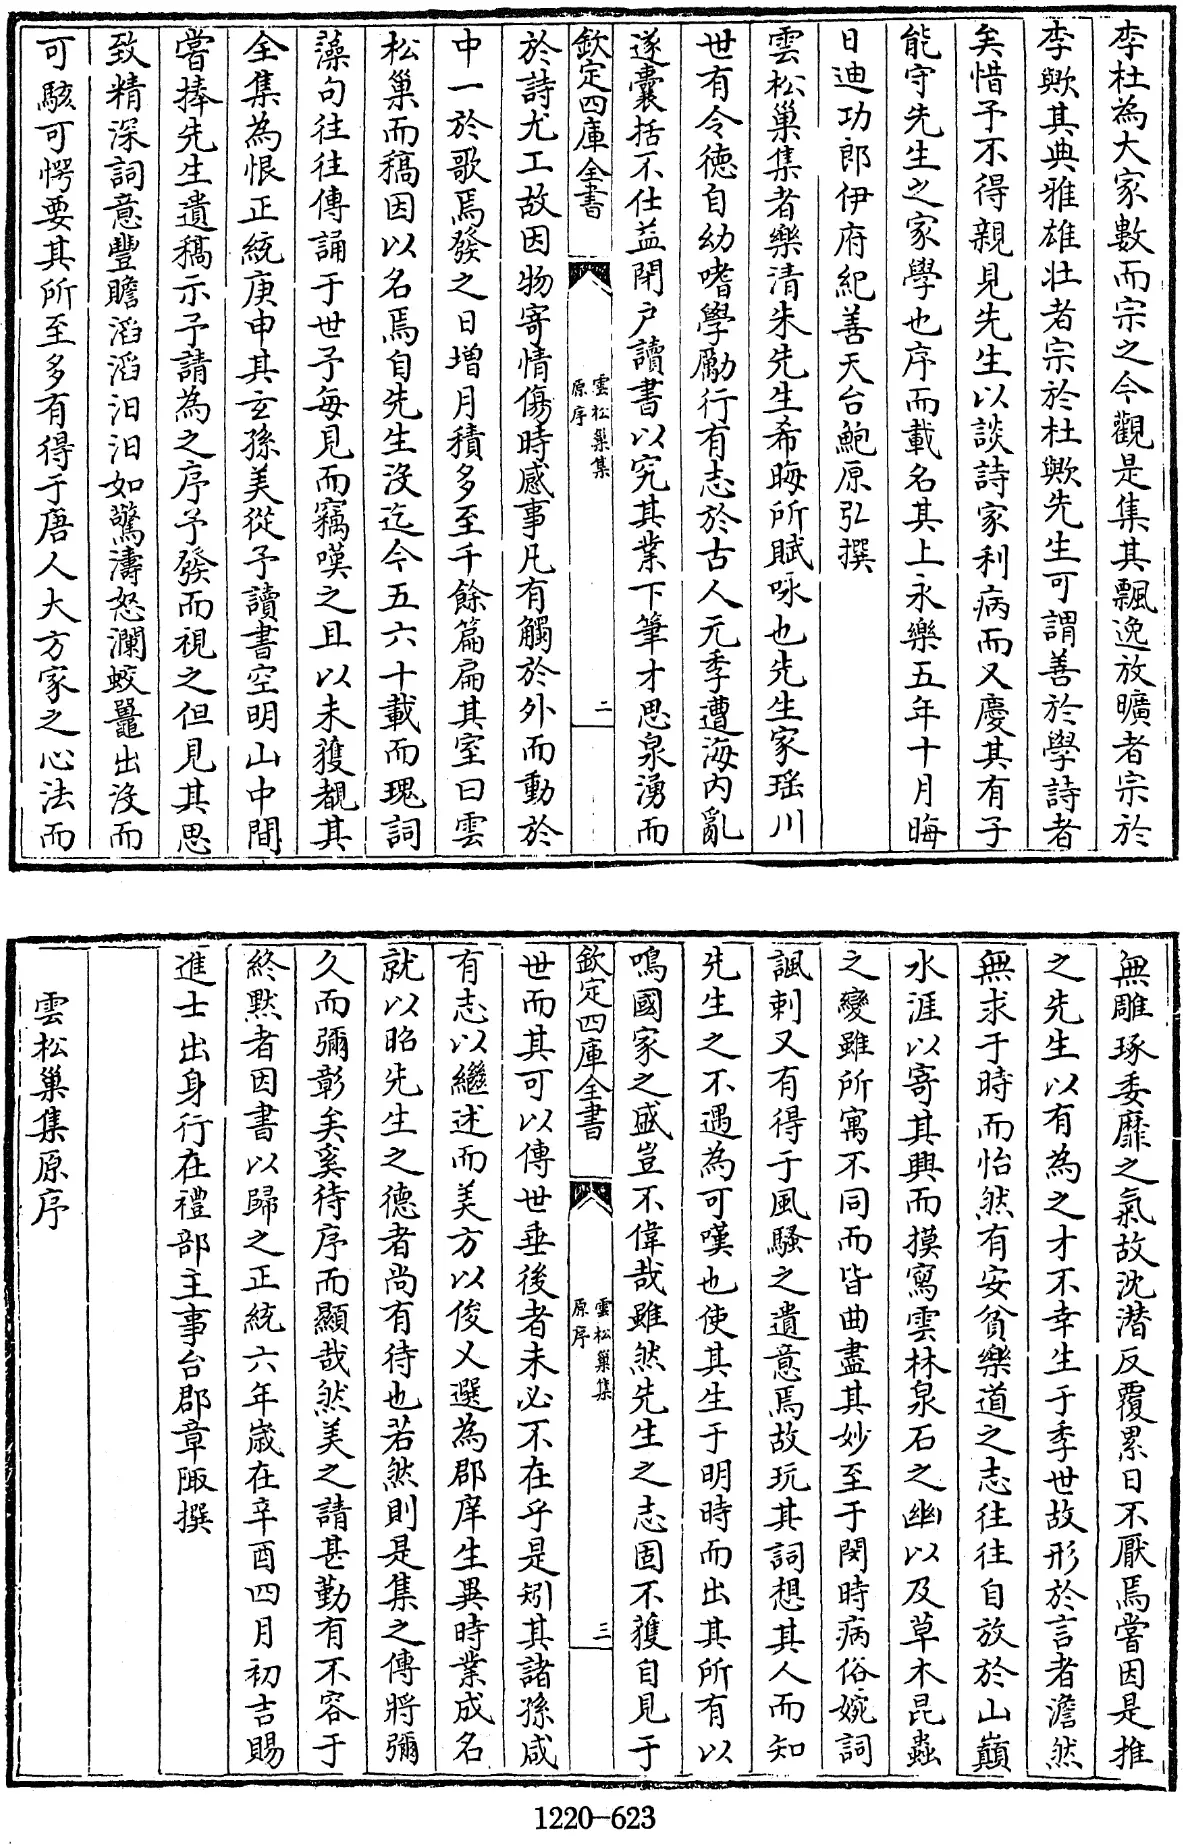 李杜為大家數而宗之今觀是集其飄逸放曠者宗於
李歟其典雅雄壯者宗於杜歟先生可謂善於學詩者
矣惜予不得親見先生以談詩家利病而又慶其有子
能守先生之家學也序而載名其上永樂五年十月晦
日迪功郎伊府紀善天台鮑原弘撰
雲松巢集者樂清朱先生希晦所賦咏也先生家瑶川
世有令德自幼嗜學勵行有志於古人元季遭海内亂
遂囊括不仕益閉户讀書以究其業下筆才思泉湧而
欽定四庫全書
雲松巢集
原序
二
於詩尤工故因物寄情傷時感事凡有觸於外而動於
中一於歌焉發之日增月積多至千餘篇扁其室曰雲
松巢而稿因以名焉自先生没迄今五六十載而瑰詞
藻句往往傳誦于世予每見而竊嘆之且以未獲覩其
全集為恨正統庚申其玄孫美從予讀書空明山中間
嘗捧先生遺稿示予請為之序予發而視之但見其思
致精深詞意豐贍滔滔汩汩如驚濤怒瀾蛟鼉出没而
可駭可愕要其所至多有得于唐人大方家之心法而
無雕琢委靡之氣故沈潜反覆累日不厭焉嘗因是推
之先生以有為之才不幸生于季世故形於言者澹然
無求于時而怡然有安貧樂道之志往往自放於山巔
水涯以寄其興而摸寫雲林泉石之幽以及草木昆蟲
之變雖所寓不同而皆曲盡其妙至于閔時病俗婉詞
諷刺又有得于風騷之遺意焉故玩其詞想其人而知
先生之不遇為可嘆也使其生于明時而出其所有以
鳴國家之盛豈不偉哉雖然先生之志固不獲自見于
欽定四庫全書
雲松巢集
原序
三
世而其可以傳世垂後者未必不在乎是矧其諸孫咸
有志以繼述而美方以俊乂選為郡庠生異時業成名
就以昭先生之德者尚有待也若然則是集之傳將彌
久而彌彰矣奚待序而顯哉然美之請甚勤有不容于
終黙者因書以歸之正統六年歲在辛酉四月初吉賜
進士出身行在禮部主事台郡章陬撰
雲松巢集原序
1220-623